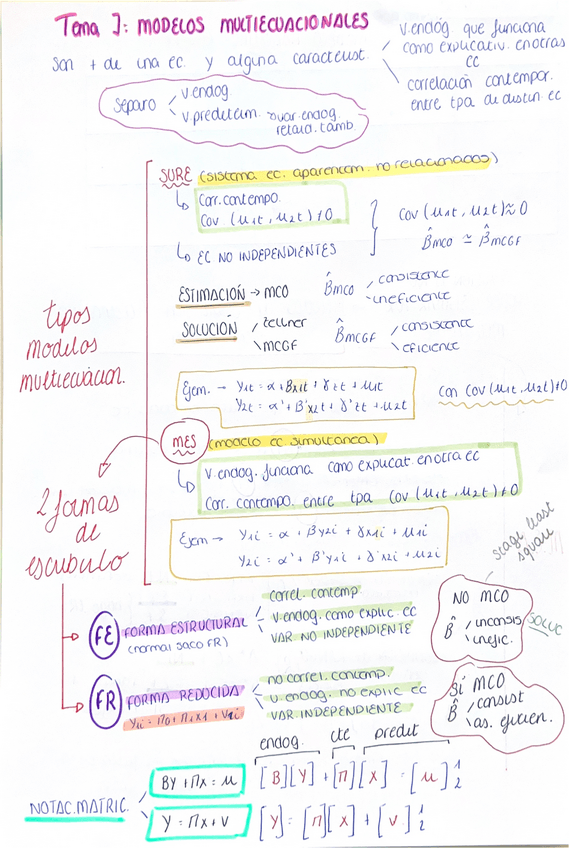 Tema 7: MODELOS MULTIECUACIONALES
Son + de una ec. y alguna característ.
v.endóg que funciona
como explicativ. en otras
ec
correlación contempor.
entre tpa de distin. ec
separo
v.endog
v.predeterm.
retard. tamb
SURE (sistema ec. aparentem. no relacionados)
Corr. contempo.
Cov (μ1t, μ2t) ≠ 0
EC NO INDEPENDIENTES
Cov (μ1t, μ2t) ≈ 0
β̂MCO ≃ β̂MCGF
ESTIMACIÓN → MCO β̂MCO
consistence
ineficience
SOLUCIÓN
zellner
MCGF
β̂MCGF
consistence
eficience
tipos
modelos
multiecuacion.
Ejem. → Y1t = α + βx1t + γzt + μ1t
Y2t = α' + β'x2t + γ'zt + μ2t
con Cov(μ1t, μ2t) ≠ 0
MES (modelo ec. simultanea)
v.endog. funciona como explicat. en otra ec
Corr. contempo. entre tpa Cov (μ1t, μ2t) ≠ 0
Ejem → Y1i = α + βy2i + γx1i + μ1i
Y2i = α' + β'y1i + γ'x2i + μ2i
2 formas
de
escribirlo
least
square
FE FORMA ESTRUCTURAL
(normal saco FR)
correl. contemp.
v.endog. como explic. ec
VAR NO INDEPENDIENTE
NO MCO
β̂
inconsis
inefic.
SOLUC
FR FORMA REDUCIDA
Y1i = π0 + π1x1 + v1i
no correl. contemp.
v.endog. no explic ec
VAR INDEPENDIENTE
SÍ MCO
β̂
consist
as. eficien.
endog. cte predet
NOTAC. MATRIC.
BY + Πx = μ [B][Y] + [Π][X] = [μ] 1 2
Y = Πx + v [Y] = [Π][X] + [v] 1 2